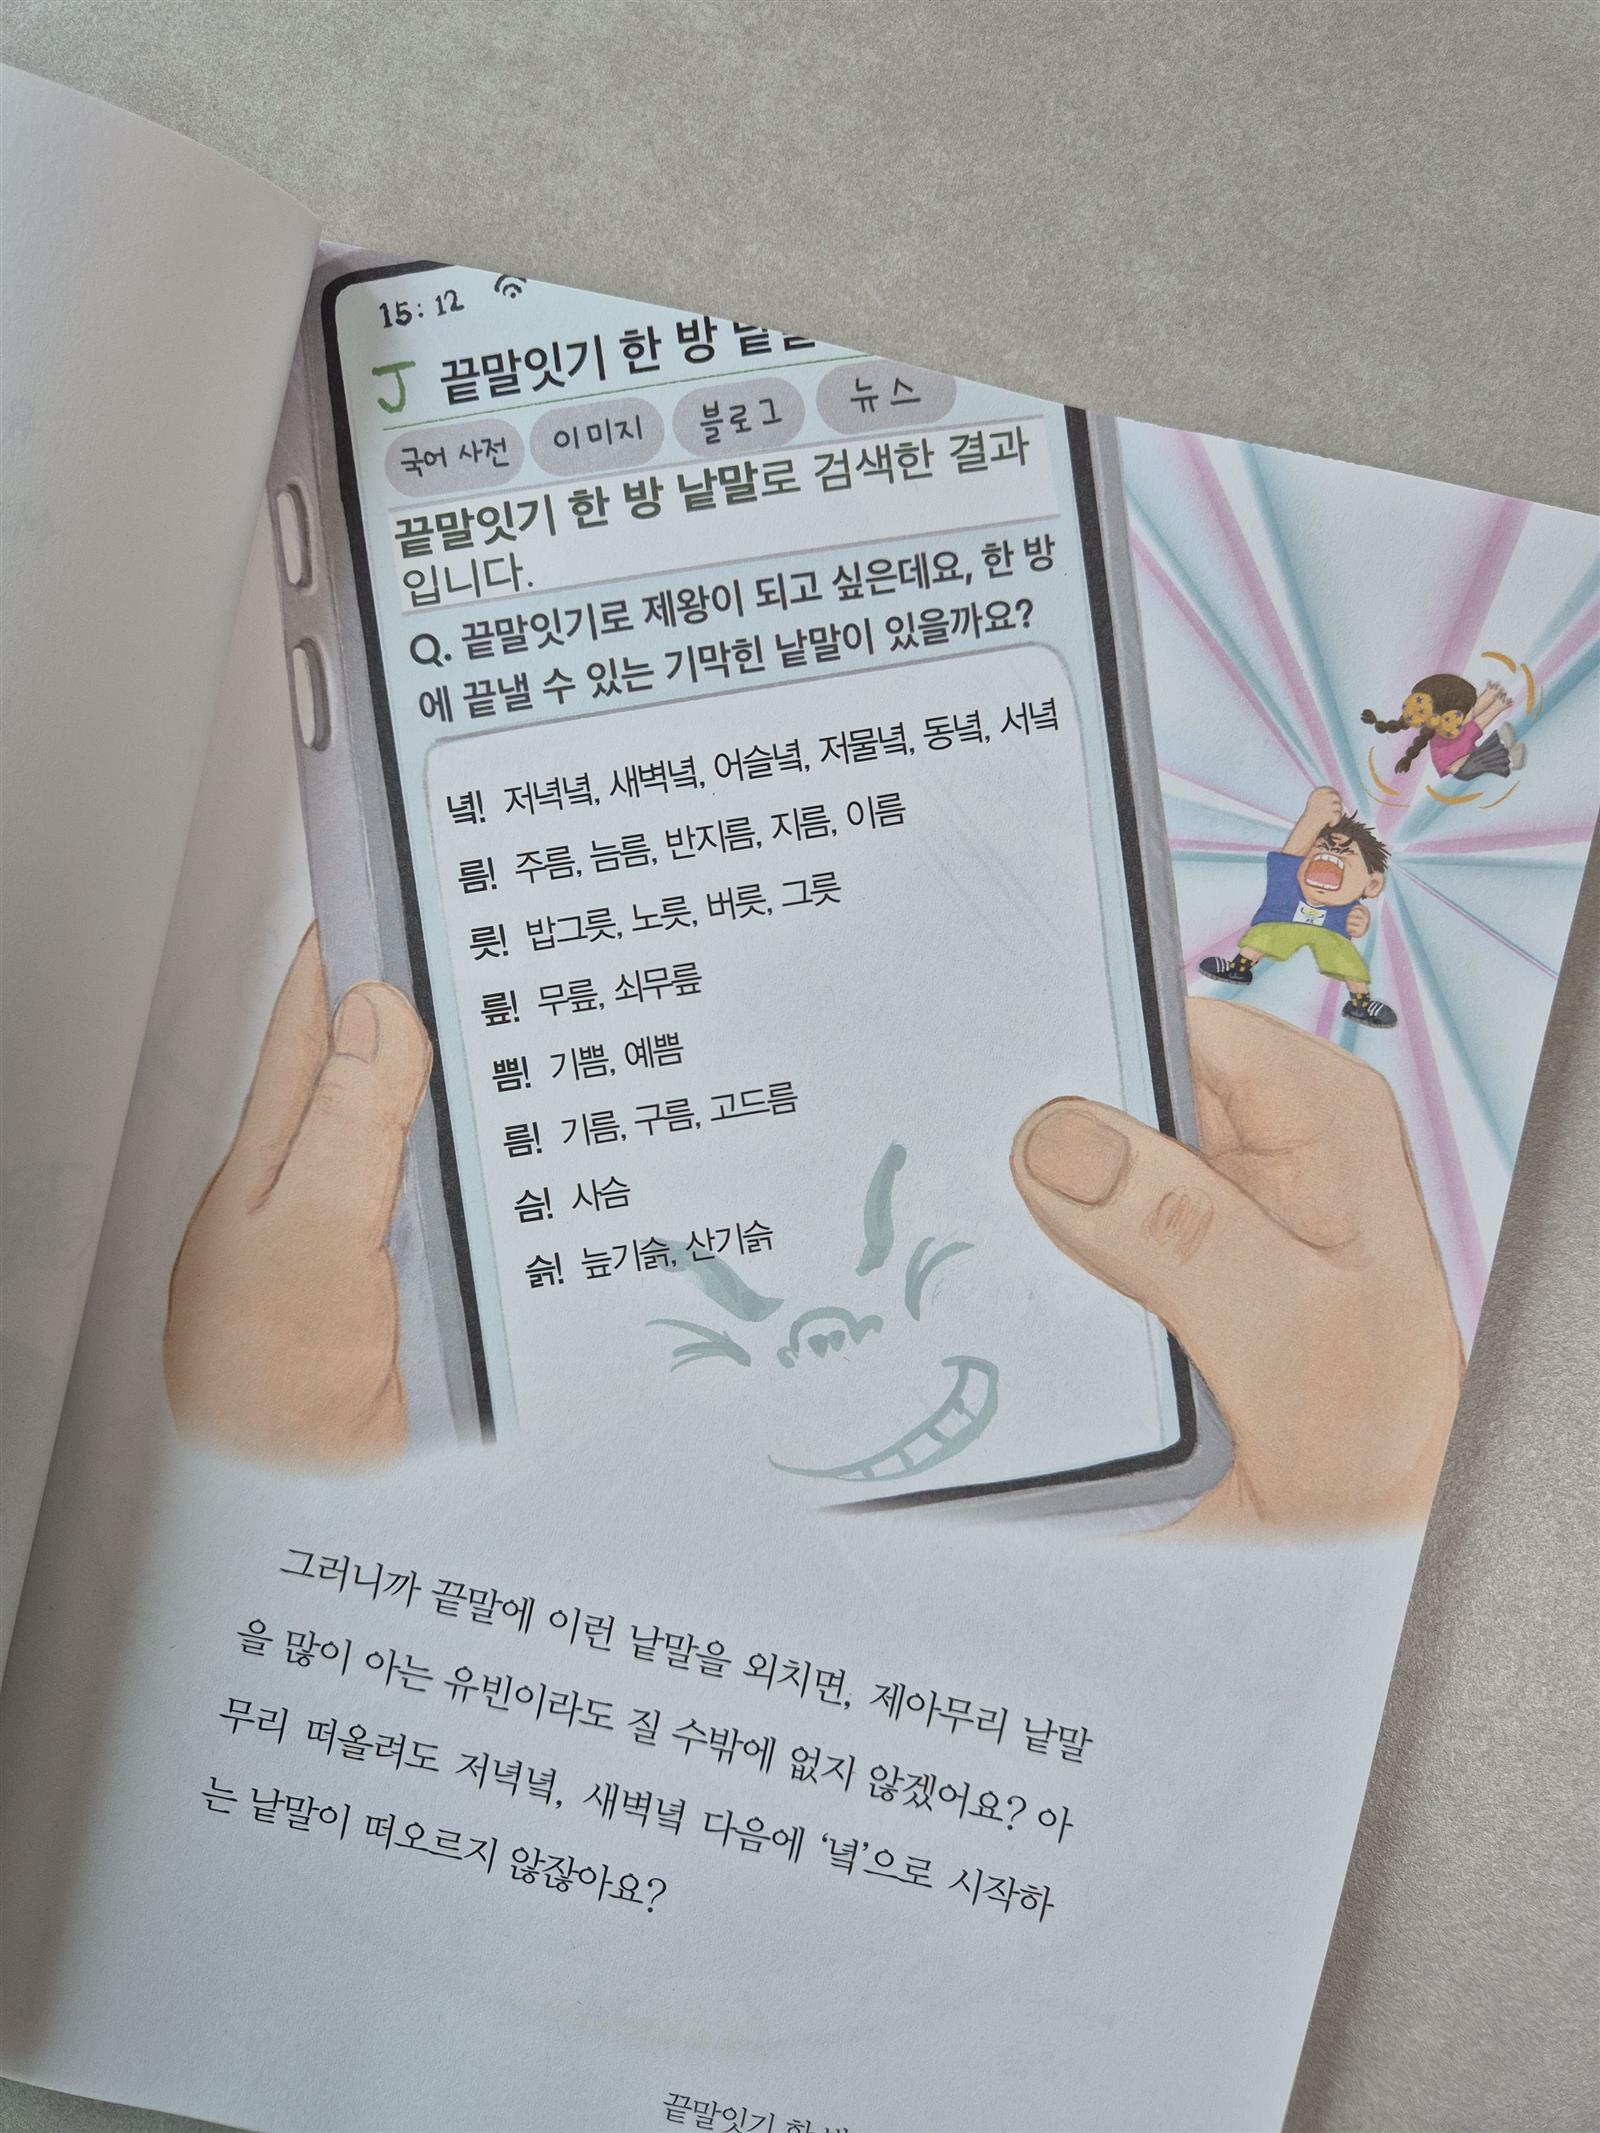 15:12
J 끝말잇기 한 방
국어 사전 이미지 블로그 뉴스
끝말잇기 한 방 낱말로 검색한 결과
입니다.
Q. 끝말잇기로 제왕이 되고 싶은데요, 한 방
에 끝낼 수 있는 기막힌 낱말이 있을까요?
녘! 저녁녘, 새벽녘, 어슬녘, 저물녘, 동녘, 서녘
름! 주름, 늠름, 반지름, 지름, 이름
릇! 밥그릇, 노릇, 버릇, 그릇
릎! 무릎, 쇠무릎
쁨! 기쁨, 예쁨
름! 기름, 구름, 고드름
슴! 사슴
슭! 늪기슭, 산기슭
그러니까 끝말에 이런 낱말을 외치면, 제아무리 낱말
을 많이 아는 유빈이라도 질 수밖에 없지 않겠어요? 아
무리 떠올려도 저녁녘, 새벽녘 다음에 ‘녘’으로 시작하
는 낱말이 떠오르지 않잖아요?
끝말잇기 한